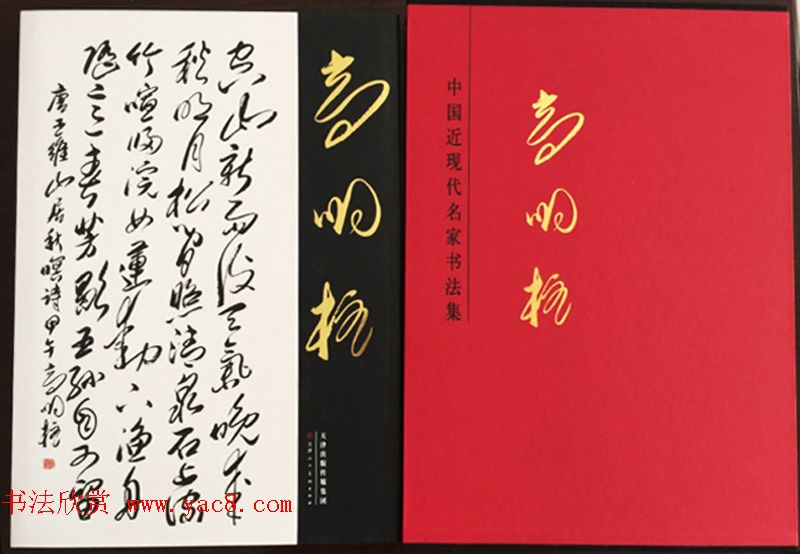 空山新雨後天氣晚來
秋明月松間照清泉石上流
竹喧歸浣女蓮動下漁舟
隨意春芳歇王孫自可留
唐王維山居秋暝詩甲午高明
高明
天津出版传媒集团
天津人民美术出版社
中国近现代名家书法集
高明
书法欣赏 www.yac8.com